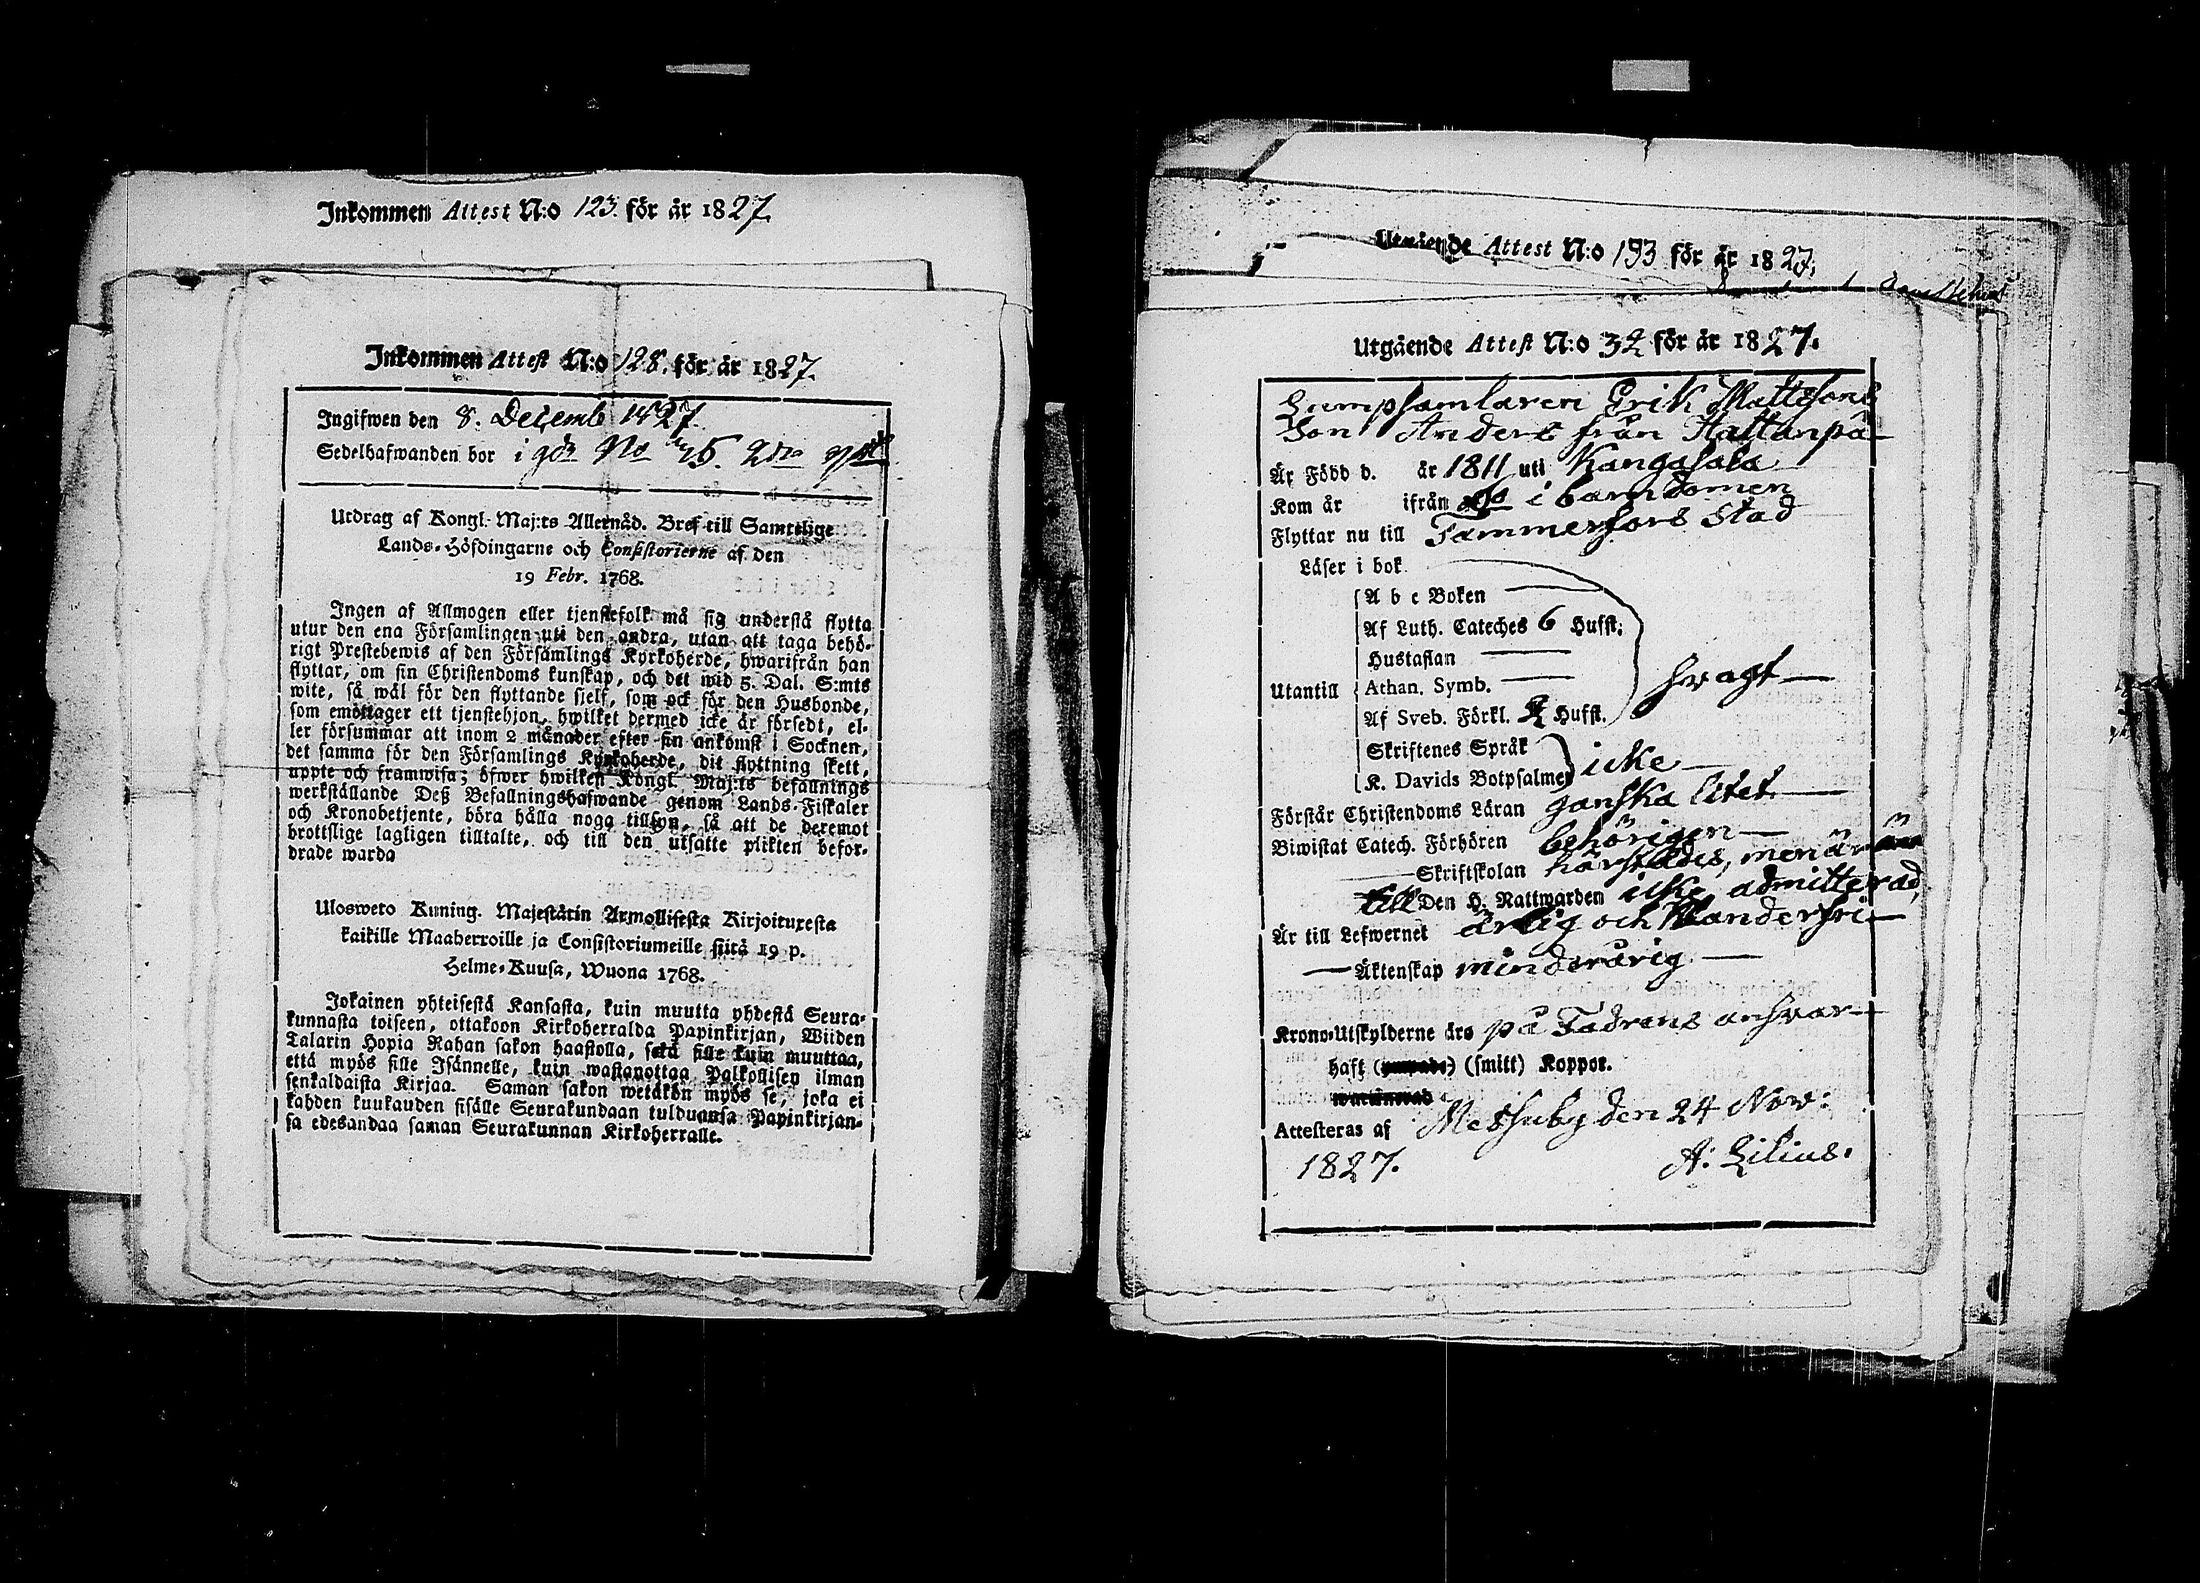 Inkommen Attest N:o 123. för år 1827.
Inkommen Attest N:o 128. för år 1827.
Ingifwen den 8. Decemb 1827.
Sedelhafwanden bor i No 25.
Utdrag af Kongl. Maj:ts Allernåd. Bref till Samtelige
Lands-Höfdingarne och Consistorierne af den
19 Febr. 1768.
Ingen af Allmogen eller tjenstefolk må sig understå flytta
utur den ena Församlingen uti den andra, utan att taga behö-
rigt Prestebewis af den Församlings Kyrkoherde, hwarifrån han
flyttar, om sin Christendoms kunskap, och det wid 5. Dal. S:mts
wite, så wäl för den flyttande sjelf, som ock för den Husbonde,
som emottager ett tjenstehjon, hwilket dermed icke är försedt, el-
ler försummar att inom 2 månader efter sin ankomst i Socknen,
det samma för den Församlings Kyrkoherde, dit flyttning skett,
uppte och framwisa; öfwer hwilken Kongl. Maj:ts befallnings
werkställande Deß Befallningshafwande genom Lands-Fiskaler
och Kronobetjente, böra hålla noga tillsyn, så att de deremot
brottslige lagligen tilltalte, och till den utsatte plikten befor-
drade warda
Ulosweto Kuning. Majestätin Armollisesta Kirjoituxesta
kaikille Maaherroille ja Consistoriumeille siitä 19 p.
Helme-Kuusa, Wuona 1768.
Jokainen yhteisestä Kansasta, kuin muutta yhdestä Seura-
kunnasta toiseen, ottakoon Kirkoherralda Papinkirjan, Wiiden
Talarin Hopia Rahan sakon haastolla, sekä sille kuin muuttaa,
että myös sille Isännelle, kuin wastanottaa Palkollisen ilman
senkaldaista Kirjaa. Saman sakon wetäkön myös se, joka ei
kahden kuukauden sisälle Seurakundaan tulduansa Papinkirjan-
sa edesandaa saman Seurakunnan Kirkoherralle.
Utgående Attest N:o 193 för år 1827.
Utgående Attest N:o 34 för år 1827.
Lumpsamlaren Erik Mattssons
Son Anders från Hattanpä
Är Född d. år 1811 uti Kangasala
Kom år ifrån i barndomen
Flyttar nu till Tammerfors Stad
Läser i bok
A b c Boken
Af Luth. Cateches 6 Hufst.
Hustaflan
Utantill Athan. Symb. svagt
Af Sveb. Förkl. 2 Hufst.
Skriftenes Språk
K. Davids Botpsalmer icke
Förstår Christendoms Läran ganska litet
Biwistat Catech. Förhören behörigen
Skriftskolan härstädes, men är än
till Den H. Nattwarden icke admitterad,
Är till Lefwernet ärlig och klanderfri
Äktenskap minderårig
Krono-Utskylderne äro på Fadrens answar
haft (smitt) Koppor.
Attesteras af Messuby den 24 Nov:
1827. A: Lilius.